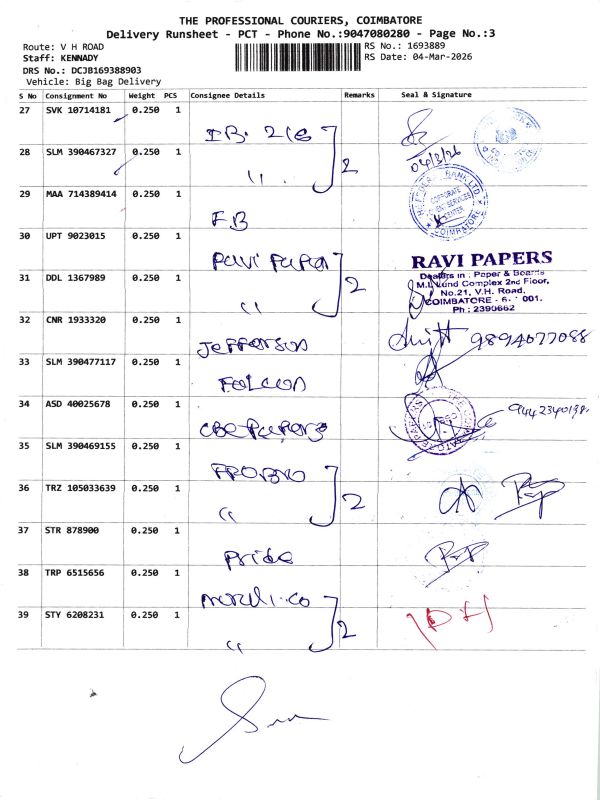 THE PROFESSIONAL COURIERS, COIMBATORE
Delivery Runsheet - PCT - Phone No.:9047080280 - Page No.:3
Route: V H ROAD
RS No.: 1693889
Staff: KENNADY
RS Date: 04-Mar-2026
DRS No.: DCJB169388903
Vehicle: Big Bag Delivery
S No Consignment No Weight PCS Consignee Details Remarks Seal & Signature
27 SVK 10714181 0.250 1
I.B. 218
2
04/3/26
28 SLM 390467327 0.250 1
"
29 MAA 714389414 0.250 1
F.B
THE FEDERAL BANK LTD
CORPORATE
CLIENT SERVICES
CENTER
COIMBATORE
30 UPT 9023015 0.250 1
Ravi Paper
2
RAVI PAPERS
Dealers in : Paper & Boards
Complex 2nd Floor,
No.21, V.H. Road,
COIMBATORE - 001.
Ph : 2390662
31 DDL 1367989 0.250 1
"
32 CNR 1933320 0.250 1
Jefferson
9894077088
33 SLM 390477117 0.250 1
Falcon
34 ASD 40025678 0.250 1
CBE Papers
35 SLM 390469155 0.250 1
2
36 TRZ 105033639 0.250 1
"
37 STR 878900 0.250 1
Pride
38 TRP 6515656 0.250 1
2
39 STY 6208231 0.250 1
"